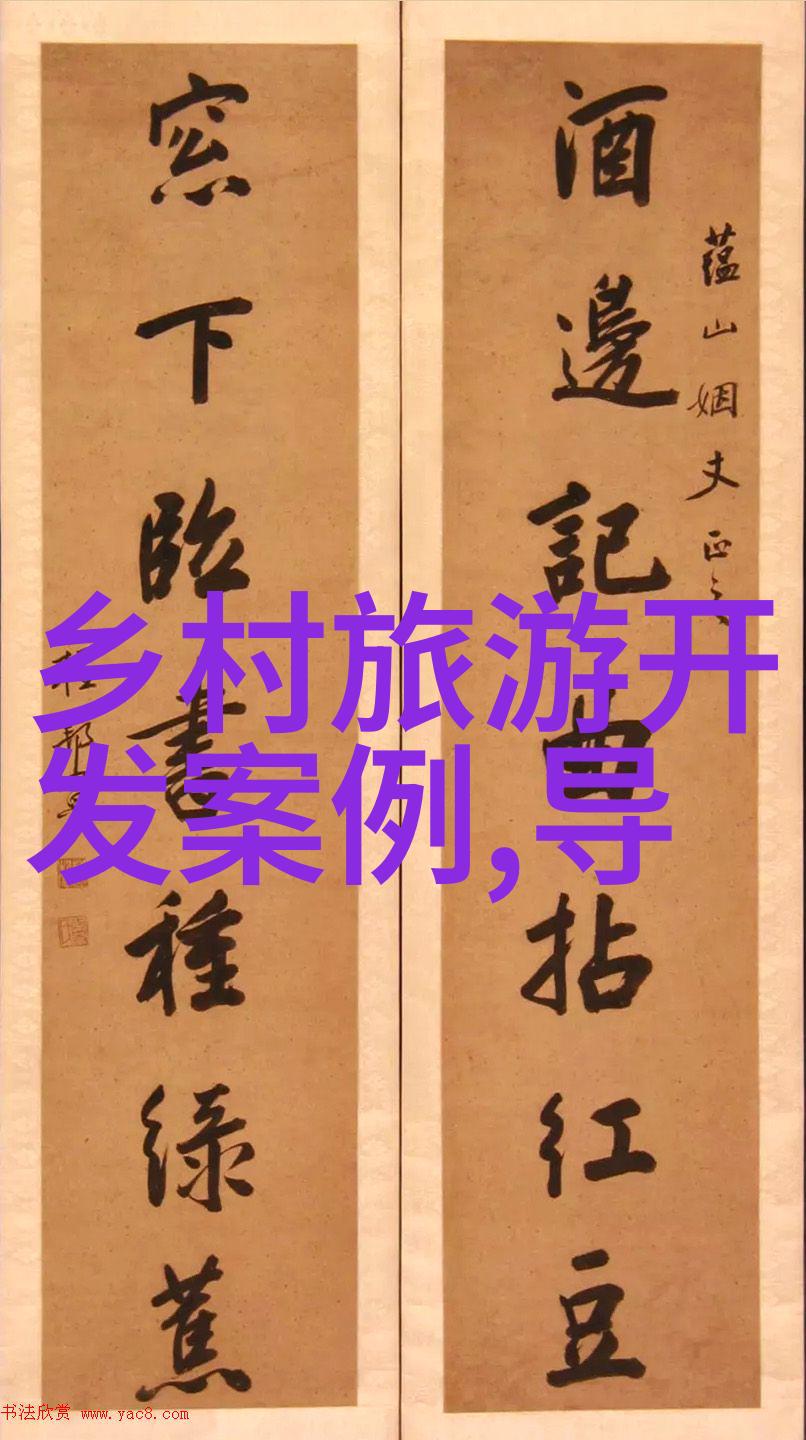 酒邊記曲拈紅豆
蘊山姻丈正之
窓下臨書種綠蕉
乡村旅游开
发案例,导
书法欣赏 www.yac8.com